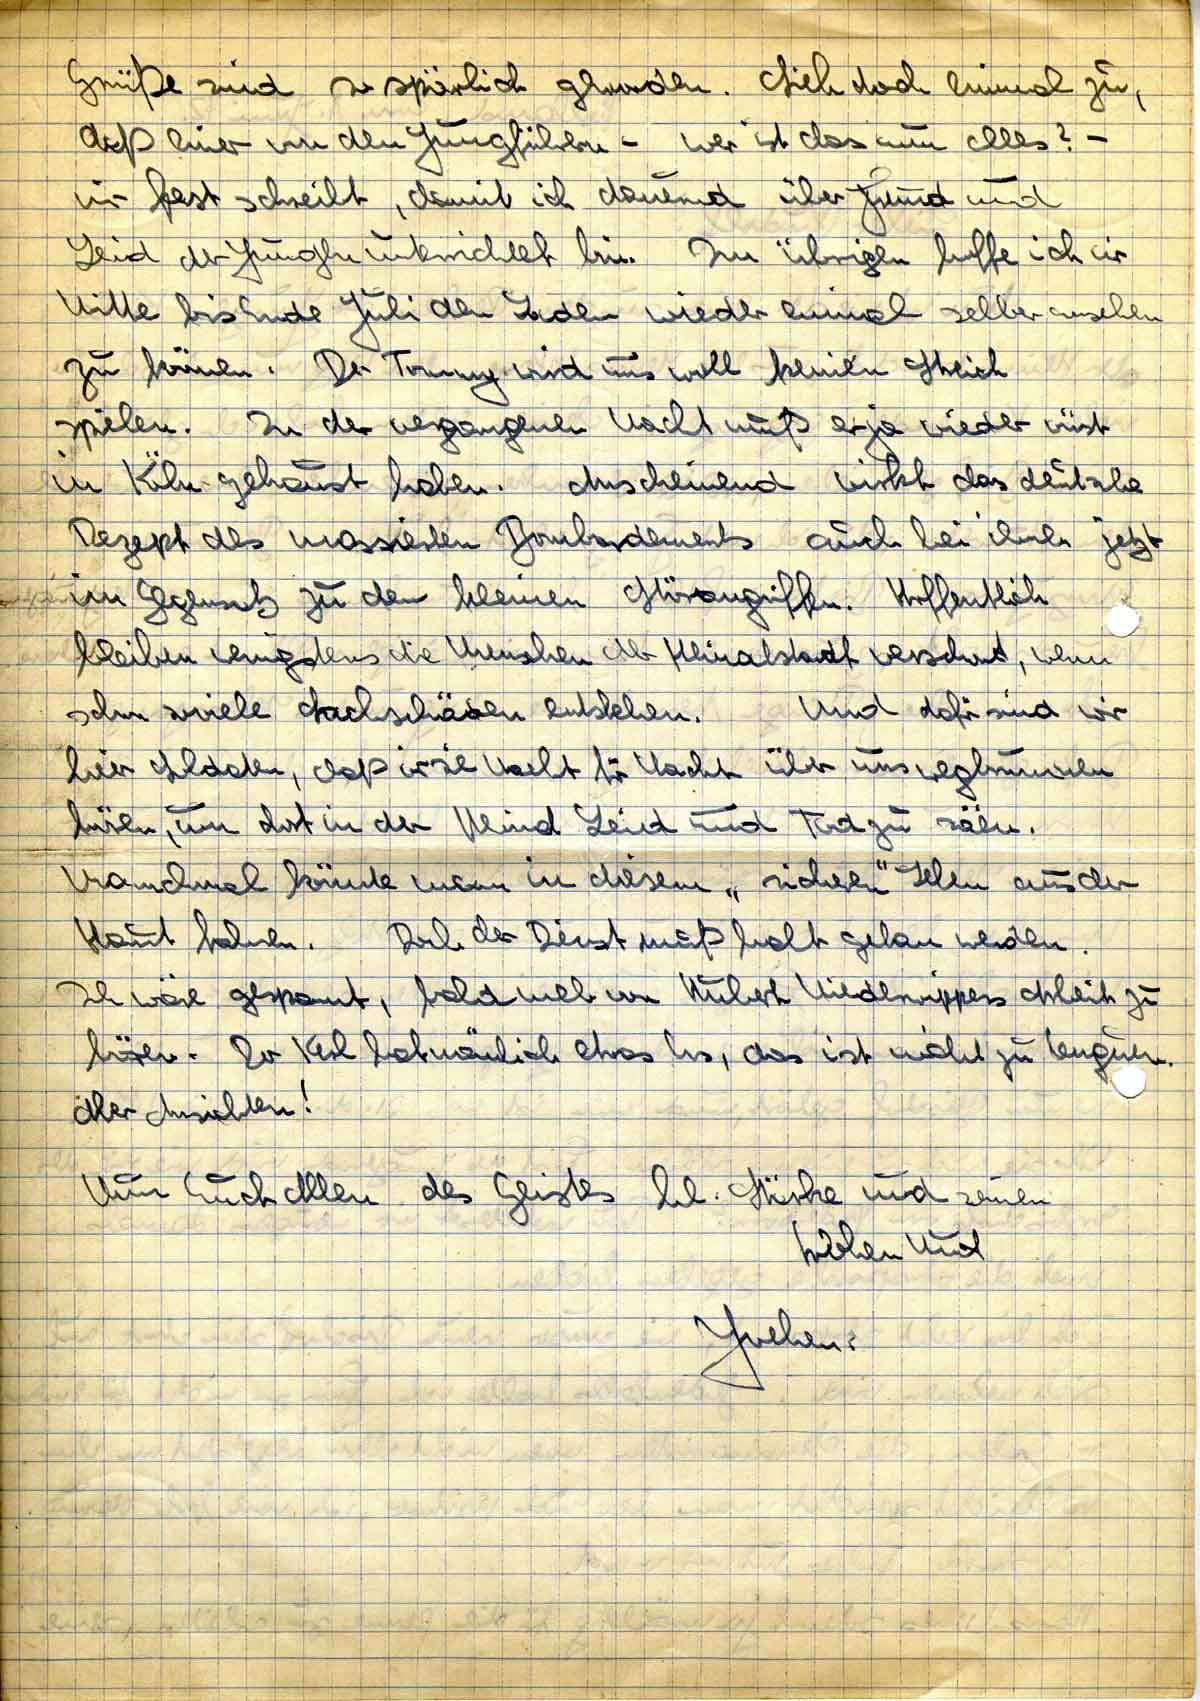 Grüße sind so spärlich geworden. Sieh doch einmal zu,
daß einer von den Jungführern - wer ist das nun alles? -
mir fest schreibt, damit ich dauernd über Freud und
Leid der Jungen unterrichtet bin. Im übrigen hoffe ich mir
Mitte bis Ende Juli den Laden wieder einmal selber ansehen
zu können. Der Tommy wird uns wohl keinen Streich
spielen. In der vergangenen Nacht muß er ja wieder wüst
in Köln gehaust haben. Anscheinend wirkt das deutsche
Rezept des massierten Bombardements auch bei ihnen jetzt
im Gegensatz zu den kleinen Störangriffen. Hoffentlich
bleiben wenigstens die Menschen der Heimatstadt verschont, wenn
schon soviele Sachschäden entstehen. Und dafür sind wir
hier Soldaten, daß wir sie Nacht für Nacht über uns wegbrummen
hören, um dort in der Heimat Leid und Tod zu säen.
Manchmal könnte man in diesem „sicheren“ Leben aus der
Haut fahren. Doch der Dienst muß halt getan werden.
Ich wäre gespannt, bald mal von Hubert Niederwippers Arbeit zu
hören. Der Kerl hat nämlich etwas los, das ist nicht zu leugnen.
Aber Ansichten!
Nun Euch Allen des Geistes hl. Stärke und seinen
frohen Mut
Jochen.